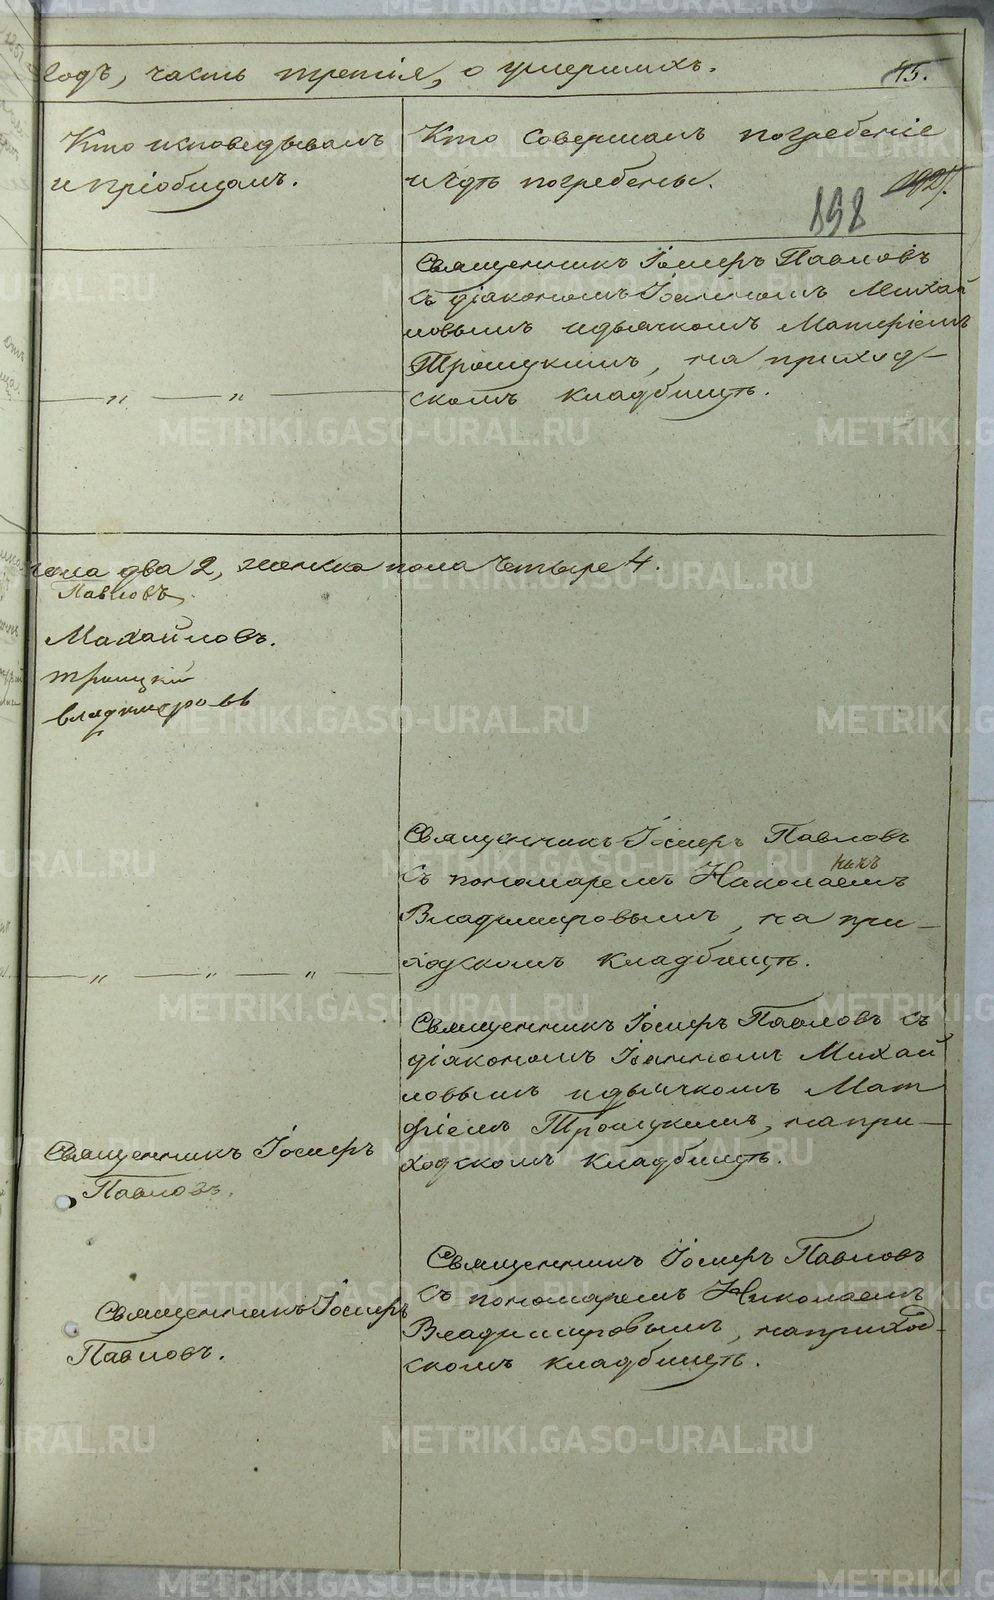 годъ, часть третія, о умершихъ.
45.
Кто исповедывалъ
и пріобщалъ.
Кто совершалъ погребеніе
и гдѣ погребены.
898
Священникъ Іосифъ Павловъ
съ діакономъ Іоанномъ Михай
ловымъ и дьячкомъ Матфіемъ
Троицкимъ, на приход-
скомъ кладбищѣ.
— " — " —
пола два 2, женска пола четыре 4.
Павловъ.
Михайловъ.
Троицкій
Владимировъ
Священникъ Іосифъ Павловъ
съ пономаремъ Николаемъ
Владимировымъ, на при-
ходскомъ кладбищѣ.
— " — " — " —
Священникъ Іосифъ Павловъ съ
діакономъ Іоанномъ Михай
ловымъ и дьячкомъ Мат
фіемъ Троицкимъ, на при-
ходскомъ кладбищѣ.
Священникъ Іосифъ
Павловъ.
Священникъ Іосифъ Павловъ
съ пономаремъ Николаемъ
Владимировымъ, на приход-
скомъ кладбищѣ.
Священникъ Іосифъ
Павловъ.
METRIKI.GASO-URAL.RU